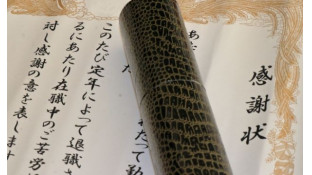 感謝状
あな
た
たって勤
このたび定年によって退職さ
るにあたり在職中のご苦労
対し感謝の意を表します